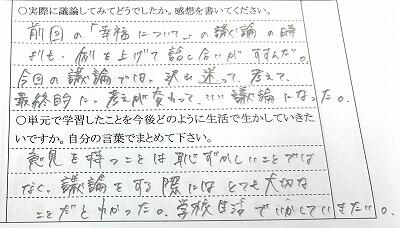 ○実際に議論してみてどうでしたか。感想を書いてください。
前回の「幸福について」の議論の時
よりも、例を上げて話し合いがすすんだ。
今回の議論では、沢山迷って、考えて、
最終的に、考えが変わって、いい議論になった。
○単元で学習したことを今後どのように生活で生かしていきた
いですか。自分の言葉でまとめて下さい。
意見を持つことは恥ずかしいことでは
なく、議論をする際にはとても大切な
ことだとわかった。学校生活でいかしていきたい。